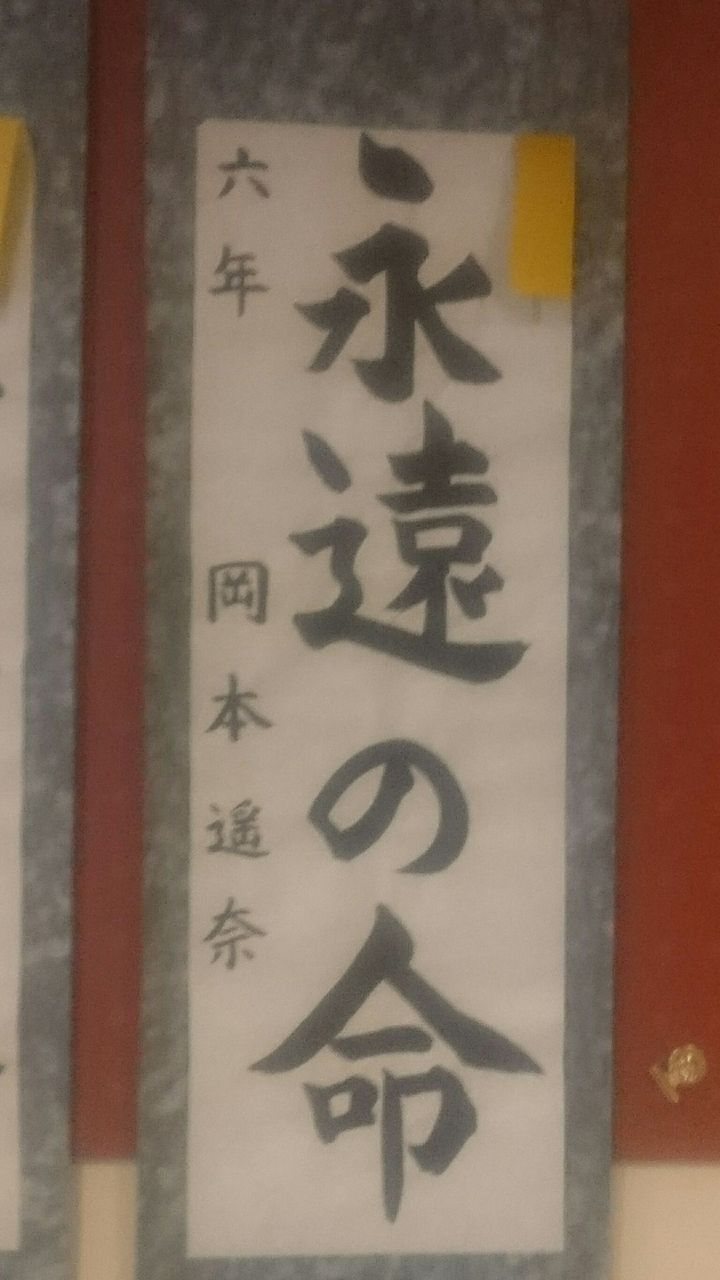 永遠の命
六年 岡本遥奈